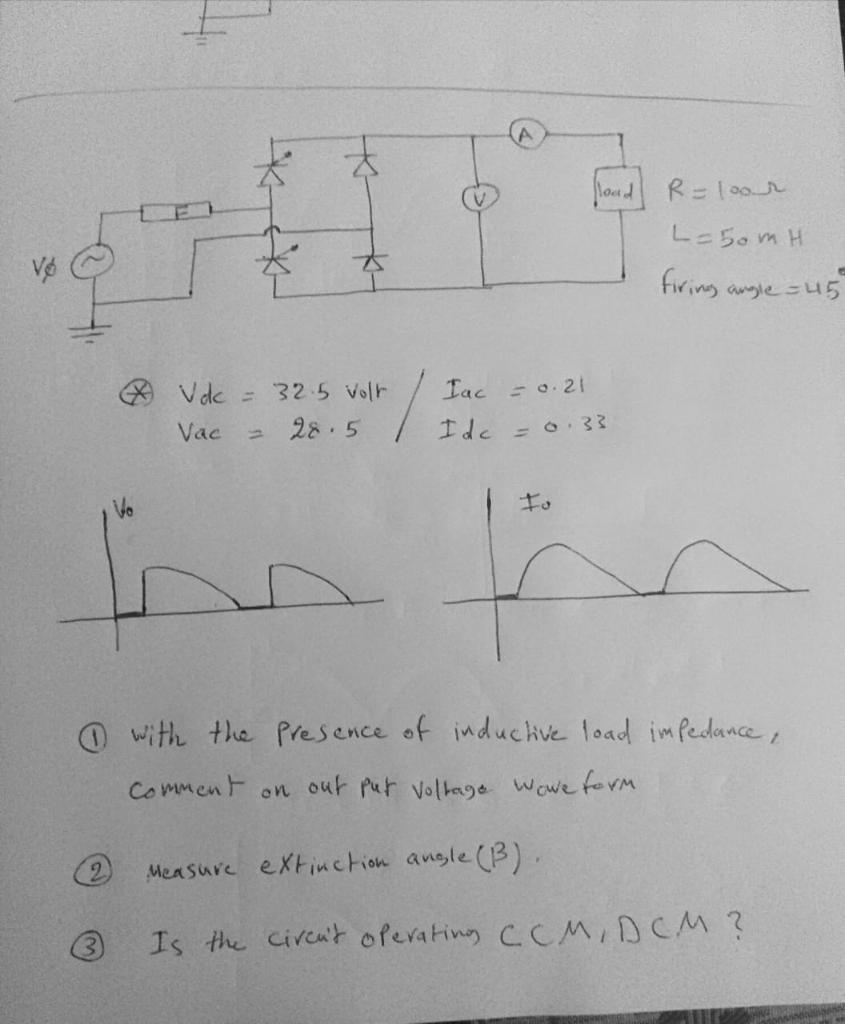 A
load
R = 100Ω
V
L = 50 mH
Vϕ
firing angle = 45°
⊛ Vdc = 32.5 Volt / Iac = 0.21
Vac = 28.5 / Idc = 0.33
Vo
Io
① with the presence of inductive load impedance,
comment on out put voltage waveform
② Measure extinction angle (β).
③ Is the circuit operating CCM, DCM ?